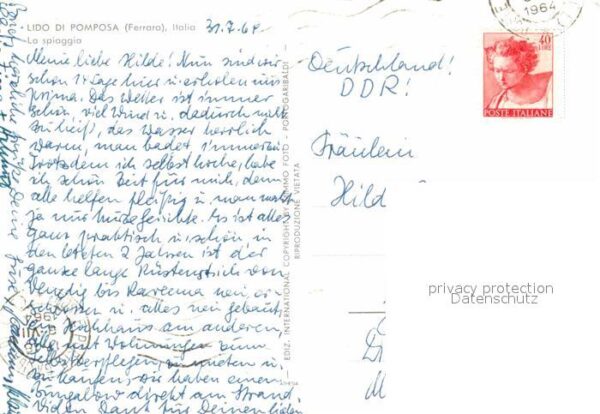 LIDO DI POMPOSA (Ferrara), Italia
La spiaggia
31.7.64
Meine liebe Hilde! Nun sind wir
schon 14 Tage hier u. erholen uns
prima. Das Wetter ist immer
schön, viel Wind u. dadurch nicht
zu heiß, das Wasser herrlich
warm, man badet immerzu.
Trotzdem ich selbst koche, habe
ich schön Zeit für mich, denn
alle helfen fleißig u. man macht
ja nur Minigerichte. Es ist alles
ganz praktisch u. schön in
den letzten 2 Jahren ist der
ganze lange Küstenstrich von
Venedig bis Ravenna neu er-
schlossen u. alles neu gebaut
ein Hochhaus am anderen,
alle mit Wohnungen zum
selbstverpflegen, zu mieten u.
zu kaufen, wir haben einen
Bungalow direkt am Strand.
Vielen Dank für Deinen lieben
EDIZ. INTERNATIONAL COPYRIGHT BY FOTO - PORTOGARIBALDI -
RIPRODUZIONE VIETATA
Deutschland!
DDR!
Fräulein
Hild
1964
40
LIRE
POSTE ITALIANE
privacy protection
Datenschutz